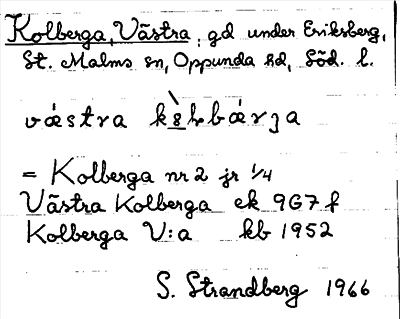 Kolberga, Västra, gd under Eriksberg,
St. Malms sn, Oppunda hd, Söd. l.
vǽstra
= Kolberga nr 2 jr 1/4
Västra Kolberga ek 9G7f
Kolberga V:a kb 1952
S. Strandberg 1966